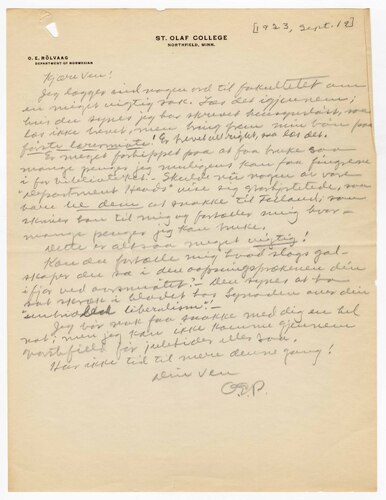 ST. OLAF COLLEGE
NORTHFIELD, MINN.
[1923, Sept. 19]
O. E. RÖLVAAG
DEPARTMENT OF NORWEGIAN
Kjære Ven!
Jeg lægger ind nogen ord til fakultetet om
en meget vigtig sak. Læs det igjennem;
hvis du synes jeg har skrevet
læs ikke brevet, men bring frem min bøn paa
første lærermøte! Er brevet all right, saa læs det.
Er meget forhippet paa at faa bruke saa
mange penger jeg muligens kan faa fingrene
i for biblioteket. Skulde nu nogen av vore
"Department Heads" vise sig saa
bare la dem at snakke til Felland, saa
skriver han til mig og fortæller mig hvor-
mange penger jeg kan bruke.
Dette er altsaa meget vigtig!
Kan du fortælle mig hvad slags gal-
skaper du sa i den din
ifjor ved avsmøtet? Den synes at ha
sat skræk i blodet hos Synoden over din
liberalisme!
Jeg bør nok faa snakke med dig en hel
nat; men jeg kan ikke komme gjennem
Northfield før juletider eller saa.
Har ikke tid til mere denne gang!
Din Ven
O.E.R.